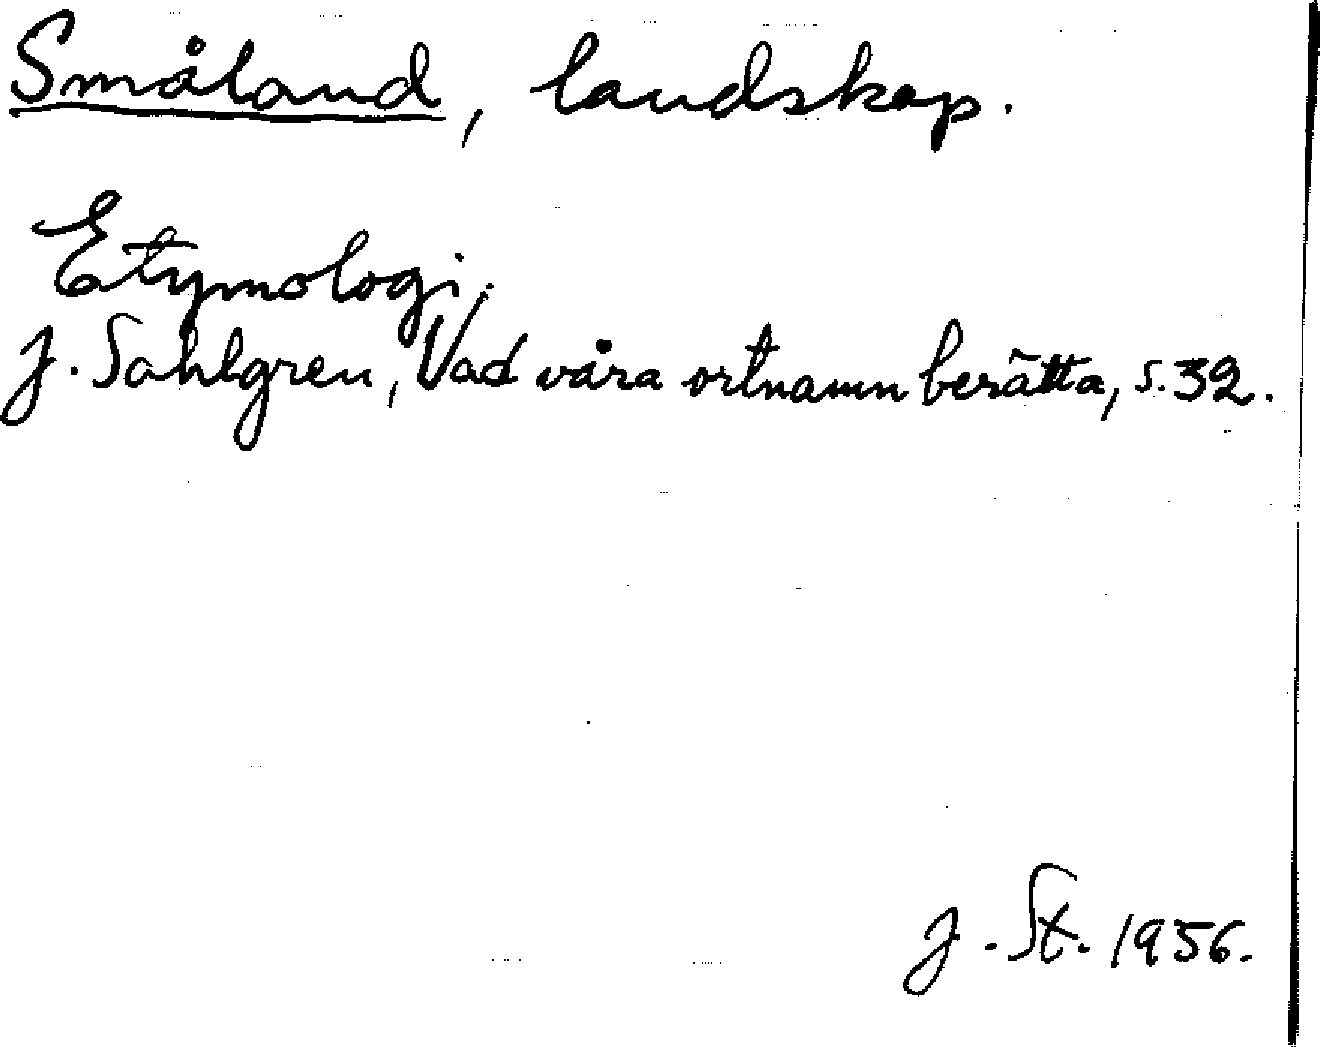 Småland, landskap.
Etymologi.
J. Sahlgren, Vad våra ortnamn berätta, s. 32.
J. St. 1956.